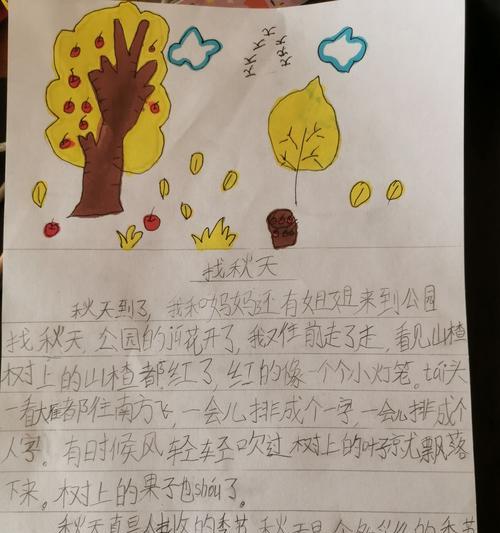 找秋天
秋天到了，我和妈妈还有姐姐来到公园
找秋天，公园的花开了，我又往前走了走，看见山楂
树上的山楂都红了，红的像一个个小灯笼。tái头
一看大雁都往南方飞，一会儿排成个一字，一会儿排成个
人字。有时候风轻轻吹过树上的叶子就飘落
下来。树上的果子也shóu了。
秋天真是丰收的季节，秋天是个的季节